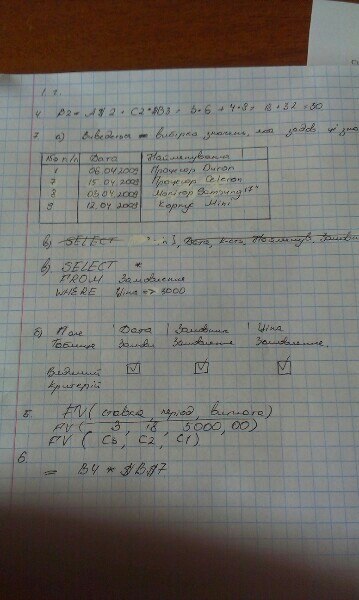 1. 1.
4. A2 * A$2 + C2 * $B3 + B * 6 + 4 * 8 + B * 32 = 30
7 а) Виведення вибірка значень, яка задов. ці
№ п/п Дата Найменування
1 06.04.2009 Процесор Duron
7 15.04.2009 Процесор Celeron
3 03.04.2009 Монітор Samsung 17"
9 12.04.2009 Корпус Mini
б) SELECT Дата,
в) SELECT *
FROM Замовлення
WHERE Ціна => 3000
б) Поле Дата Замовник Ціна
Таблиця Замовл Замовлення Замовлення
Ведений
критерій
5. FV (ставка, період, виплата)
FV ( 3, 18, 5000,00)
FV ( C3, C2, C1)
6.
= B4 * $B$7